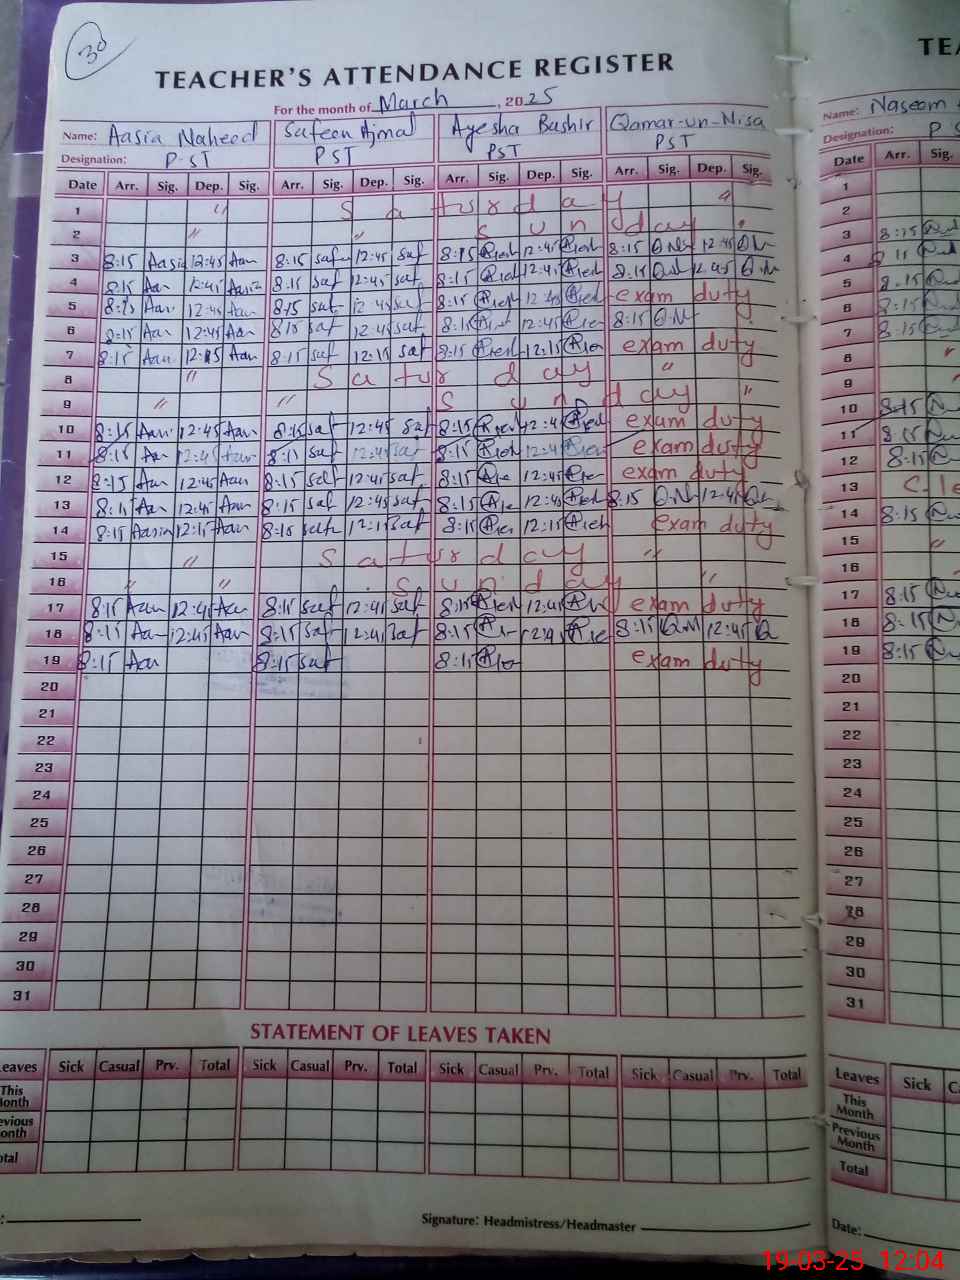 30
TEACHER'S ATTENDANCE REGISTER
For the month of March, 2025
Name: Aasia Naheed Safeen Ajmal Ayesha Bashir Qamar-un-Nisa
Designation: P.ST PST PST PST
Date Arr. Sig. Dep. Sig. Arr. Sig. Dep. Sig. Arr. Sig. Dep. Sig. Arr. Sig. Dep. Sig.
1 " Saturday "
2 " " Sunday "
3 8:15 Aasia 12:45 Aan 8:15 safe 12:45 saf 8:15 12:45 8:15 Q.N 12:45 Q.N
4 8:15 Aan 12:45 Aasia 8:15 saf 12:45 saf 8:15 12:45 8:15 Q.N 12:45 Q.N
5 8:15 Aan 12:45 Aan 8:15 saf 12:45 saf 8:15 12:45 exam duty
6 8:15 Aan 12:45 Aan 8:15 saf 12:45 saf 8:15 12:45 8:15 Q.N
7 8:15 Aan 12:15 Aan 8:15 saf 12:15 saf 8:15 12:15 exam duty
8 " Saturday "
9 " " Sunday "
10 8:15 Aan 12:45 Aan 8:15 saf 12:45 saf 8:15 12:45 exam duty
11 8:15 Aan 12:45 Aan 8:15 saf 12:45 saf 8:15 12:45 exam duty
12 8:15 Aan 12:45 Aan 8:15 saf 12:45 saf 8:15 12:45 exam duty
13 8:15 Aan 12:45 Aan 8:15 saf 12:45 saf 8:15 12:45 8:15 Q.N 12:45 Q.N
14 8:15 Aasia 12:15 Aan 8:15 safe 12:15 saf 8:15 12:15 exam duty
15 " Saturday "
16 " " Sunday "
17 8:15 Aan 12:45 Aan 8:15 saf 12:45 saf 8:15 12:45 exam duty
18 8:15 Aan 12:45 Aan 8:15 saf 12:45 saf 8:15 12:45 8:15 Q.N 12:45 Q
19 8:15 Aan 8:15 saf 8:15 exam duty
20
21
22
23
24
25
26
27
28
29
30
31
STATEMENT OF LEAVES TAKEN
eaves Sick Casual Prv. Total Sick Casual Prv. Total Sick Casual Prv. Total Sick Casual Prv. Total
This
onth
evious
onth
otal
Signature: Headmistress/Headmaster
TEA
Name: Naseem
Designation: P S
Date Arr. Sig.
1
2
3 8:15
4 8:15
5 8:15
6 8:15
7 8:15
8
9
10 8:15
11 8:15
12 8:15
13
14 8:15
15 "
16
17 8:15
18 8:15
19 8:15
20
21
22
23
24
25
26
27
28
29
30
31
Leaves Sick C
This
Month
Previous
Month
Total
Date:
19-03-25 12:04